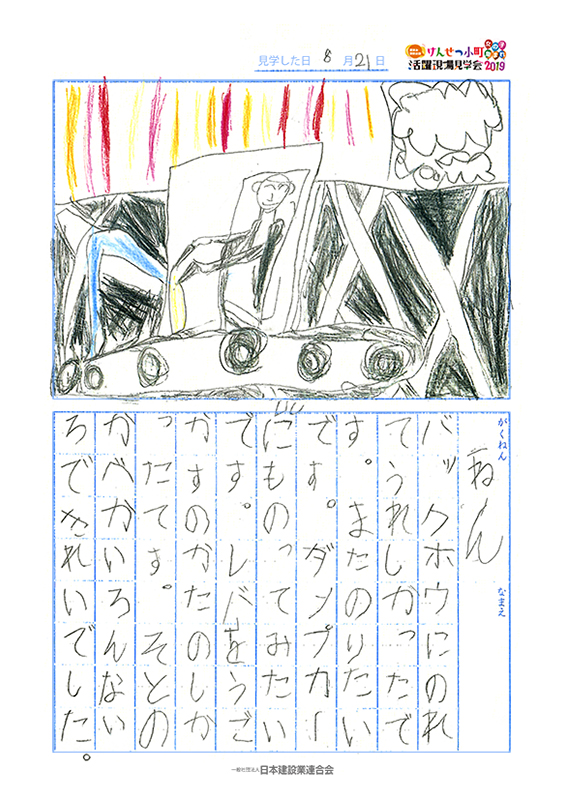 見学した日 8月21日
けんせつ小町
活躍現場見学会2019
がくねん
一ねん
なまえ
バックホウにのれ
てうれしかったで
す。またのりたい
です。ダンプカー
にものってみたい
です。レバーをうご
かすのがたのしか
ったです。そとの
かべがいろんない
ろできれいでした。
一般社団法人 日本建設業連合会